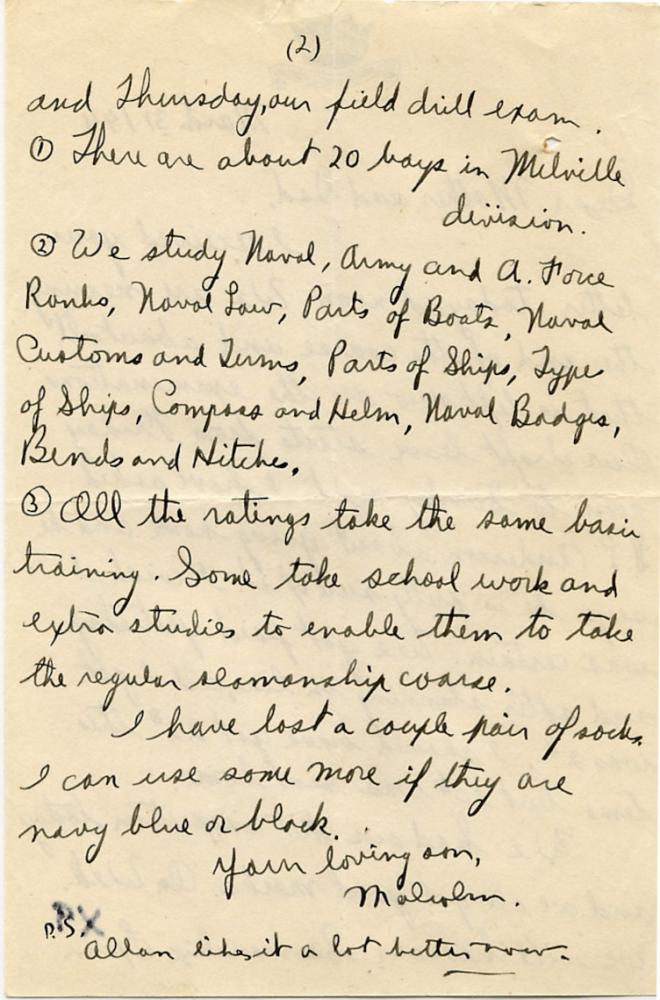 (2)
and Thursday, our field drill exam.
① There are about 20 boys in Milville
division.
② We study Naval, Army and A. Force
Ranks, Naval Law, Parts of Boats, Naval
Customs and Terms, Parts of Ships, Type
of Ships, Compass and Helm, Naval Badges,
Bends and Hitches.
③ All the ratings take the same basic
training. Some take school work and
extra studies to enable them to take
the regular seamanship coarse.
I have lost a couple pair of socks.
I can use some more if they are
navy blue or black.
Your loving son,
Malcolm.
P.S.
Allan likes it a lot better now.